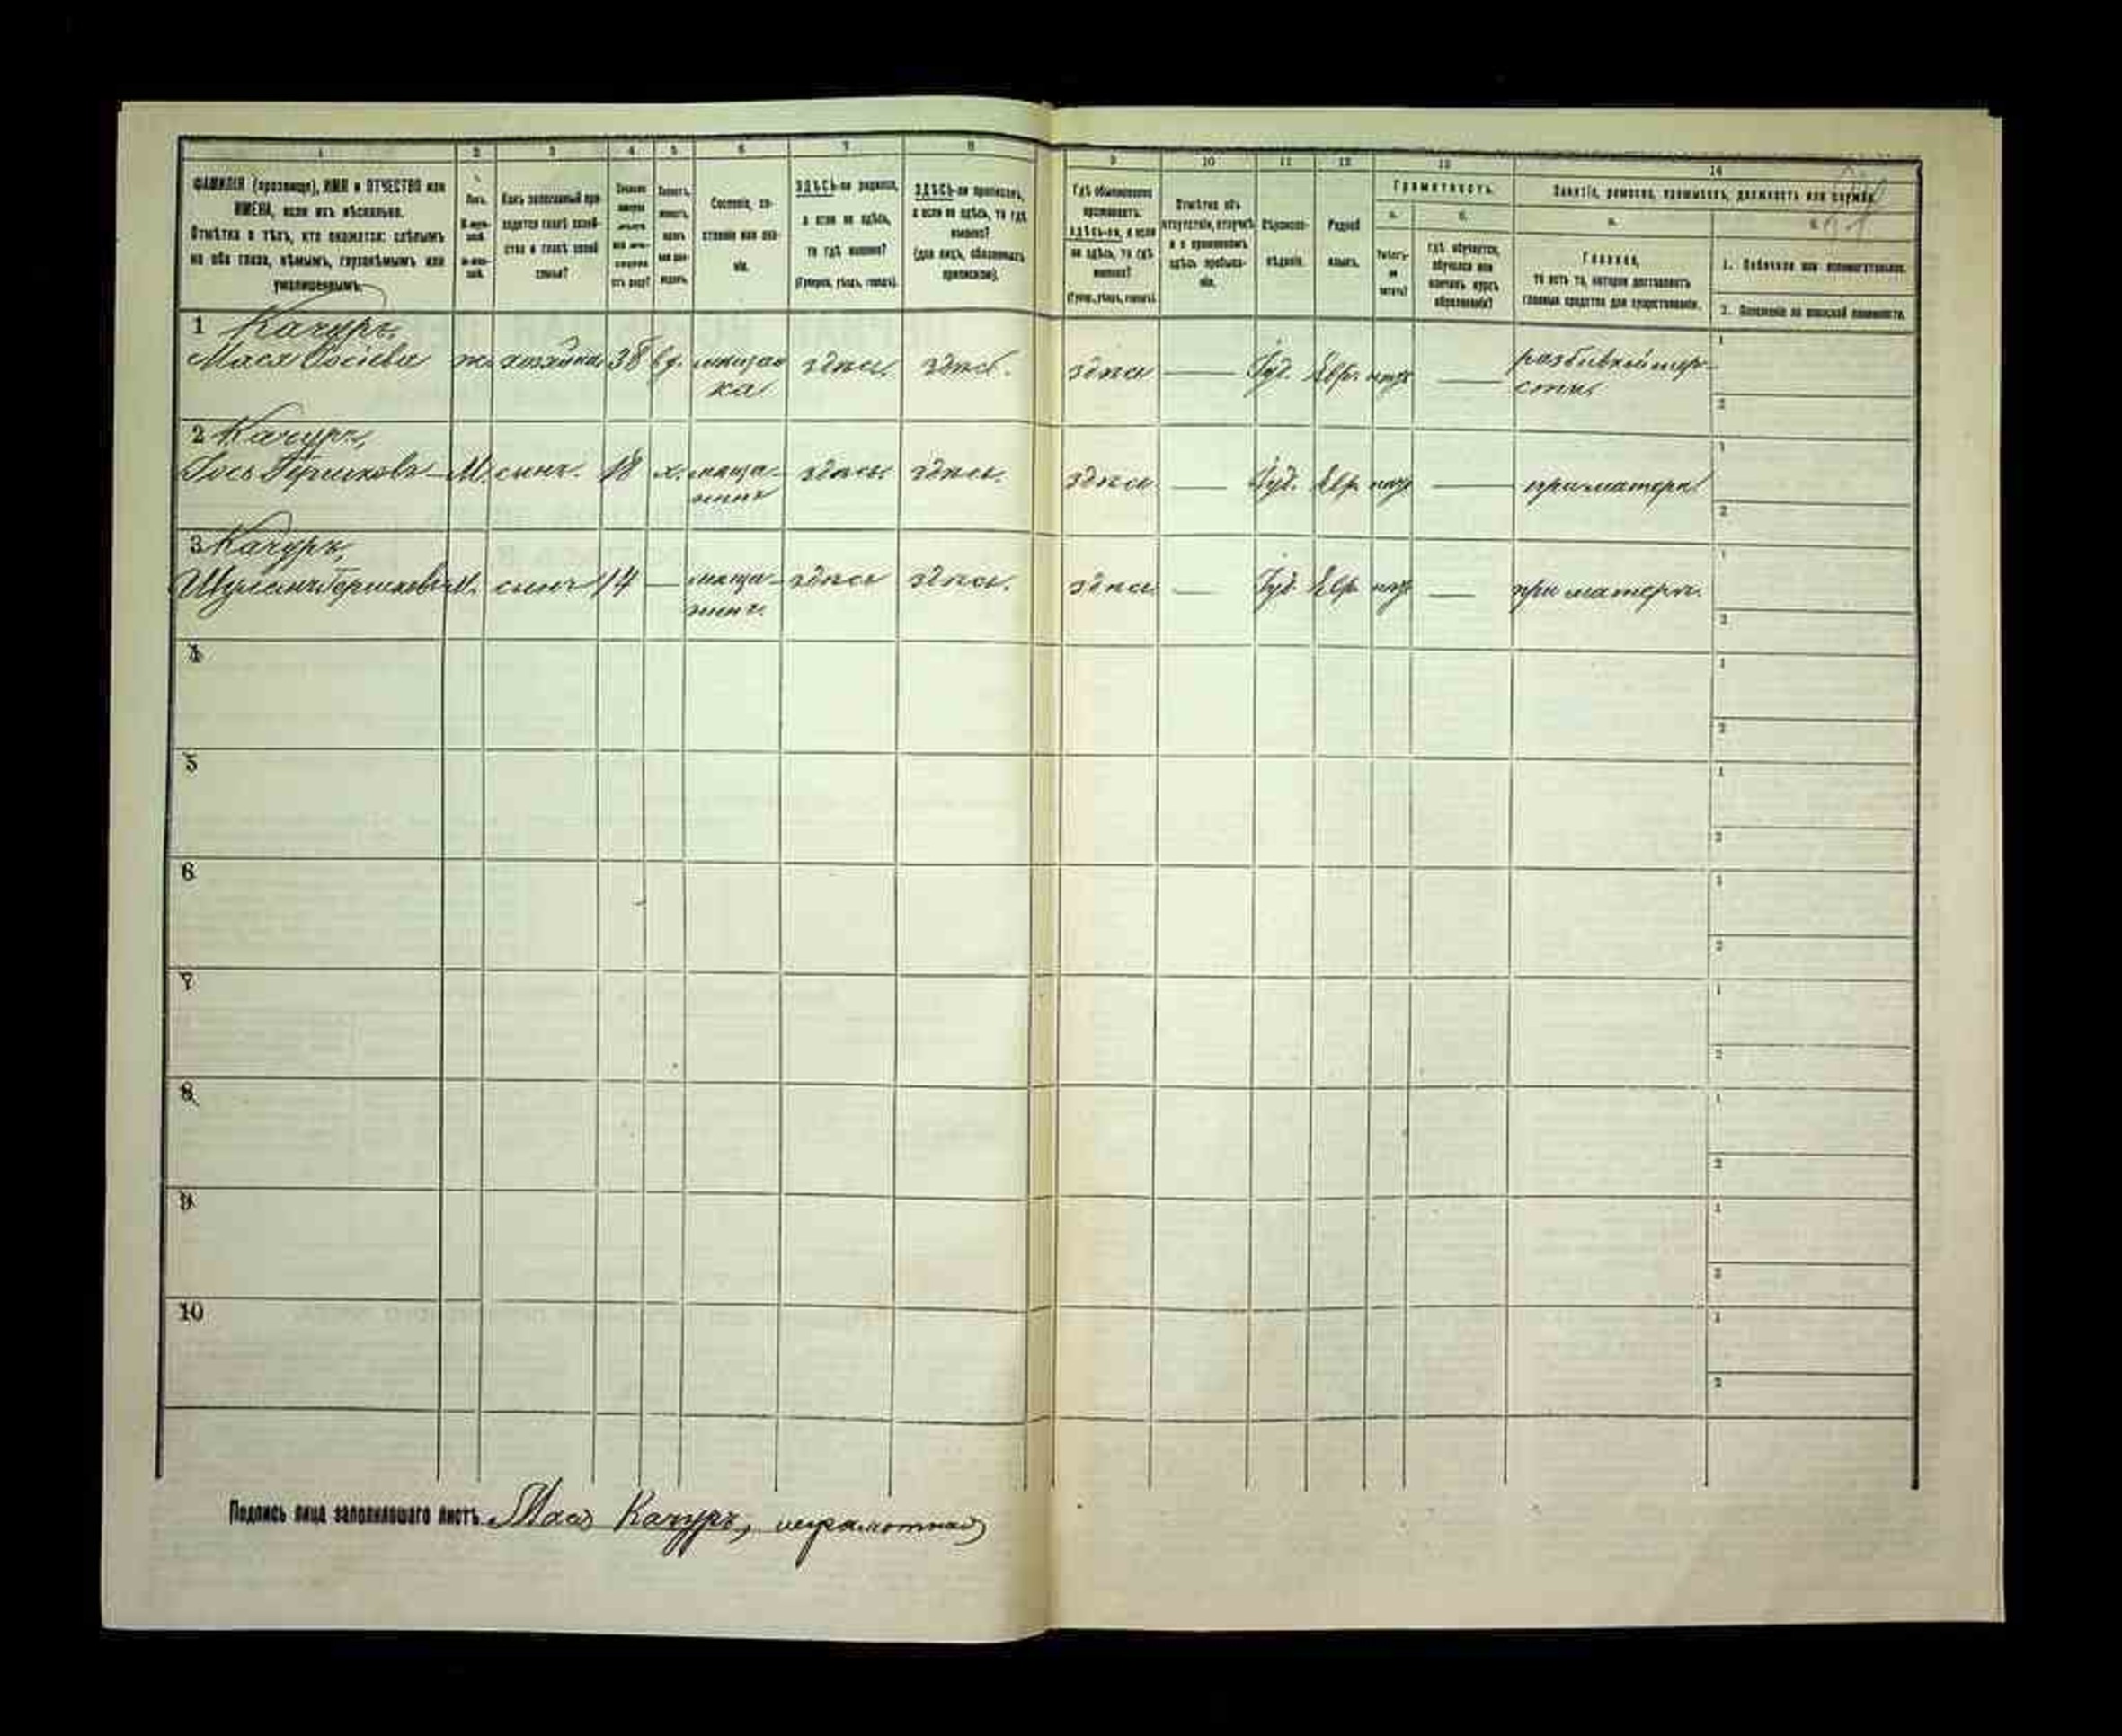 1 2 3 4 5 6 7 8 9 10 11 12 13 14
ФАМИЛІЯ (прозвище), ИМЯ и ОТЧЕСТВО или
ИМЕНА, если ихъ нѣсколько.
Отмѣтка о тѣхъ, кто окажется: слѣпымъ
на оба глаза, нѣмымъ, глухонѣмымъ или
умалишеннымъ.
Полъ.
Какъ записанный при-
ходится главѣ хозяй-
ства и главѣ своей
семьи?
Сословіе, со-
стояніе или зва-
ніе.
ЗДѢСЬ-ли родился,
а если не здѣсь,
то гдѣ именно?
(Губернія, уѣздъ, городъ).
ЗДѢСЬ-ли приписанъ,
а если не здѣсь, то гдѣ
именно?
(для лицъ, обязанныхъ
припискою).
Гдѣ обыкновенно
проживаетъ:
здѣсь-ли, а если
не здѣсь, то гдѣ
именно?
(Губер., уѣздъ, городъ).
Отмѣтка объ
отсутствіи, отлучкѣ
и о временномъ
здѣсь пребыва-
ніи.
Вѣроиспо-
вѣданіе.
Родной
языкъ.
Грамотность.
а. б.
Умѣетъ-
ли
читать?
Гдѣ обучается,
обучался или
кончилъ курсъ
образованія?
Занятіе, ремесло, промыселъ, должность или служба.
а. б.
Главное,
то есть то, которое доставляетъ
главныя средства для существованія.
1. Побочное или вспомогательное.
2. Положеніе по воинской повинности.
1 Качуръ,
Мася Іосіева ж. хозяйка 38 вд. мѣщан здѣсь. здѣсь. здѣсь — Іуд. Евр. нѣтъ — разбивкой шер- 1
ка сти. 2
2 Качуръ,
Гершковъ М. сынъ. 18 х. мѣща- здѣсь. здѣсь. здѣсь — Іуд. Евр. нѣтъ — при матери. 1
нинъ 2
3 Качуръ,
Гершковъ М. сынъ 14 — мѣща- здѣсь здѣсь. здѣсь — Іуд. Евр. нѣтъ — при матери. 1
нинъ. 2
4 1
2
5 1
2
6 1
2
7 1
2
8 1
2
9 1
2
10 1
2
Подпись лица заполнившаго листъ Мася Качуръ, неграмотная